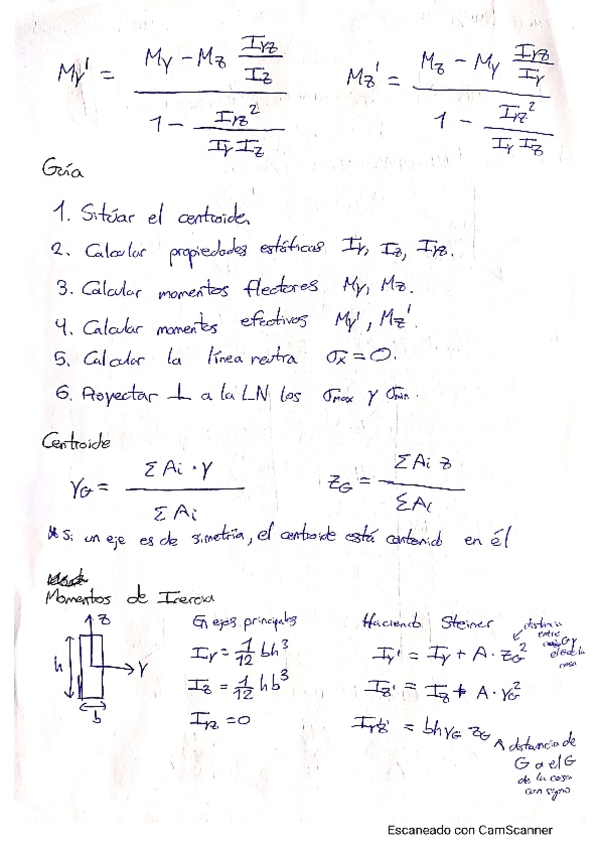 My' = (My - Mz Iyz/Iz) / (1 - Iyz²/(Iy Iz))    Mz' = (Mz - My Iyz/Iy) / (1 - Iyz²/(Iy Iz))
Guía
1. Sitúar el centroide.
2. Calcular propiedades estáticas Iy, Iz, Iyz.
3. Calcular momentos flectores My, Mz.
4. Calcular momentos efectivos My', Mz'.
5. Calcular la línea neutra σx = 0.
6. Proyectar ⊥ a la LN los σmax y σmin.
Centroide
YG = ΣAi·y / ΣAi    zG = ΣAi z / ΣAi
* Si un eje es de simetría, el centroide está contenido en él
Momentos de Inercia
z
h
Y
b
En ejes principales
Iy = 1/12 bh³
Iz = 1/12 hb³
Iyz = 0
Haciendo Steiner
distancia
entre
G y
el de la
cosa
Iy' = Iy + A·zG²
Iz' = Iz + A·yG²
Iyz' = bh yG zG
distancia de
G a el G
de la cosa
con signo
Escaneado con CamScanner